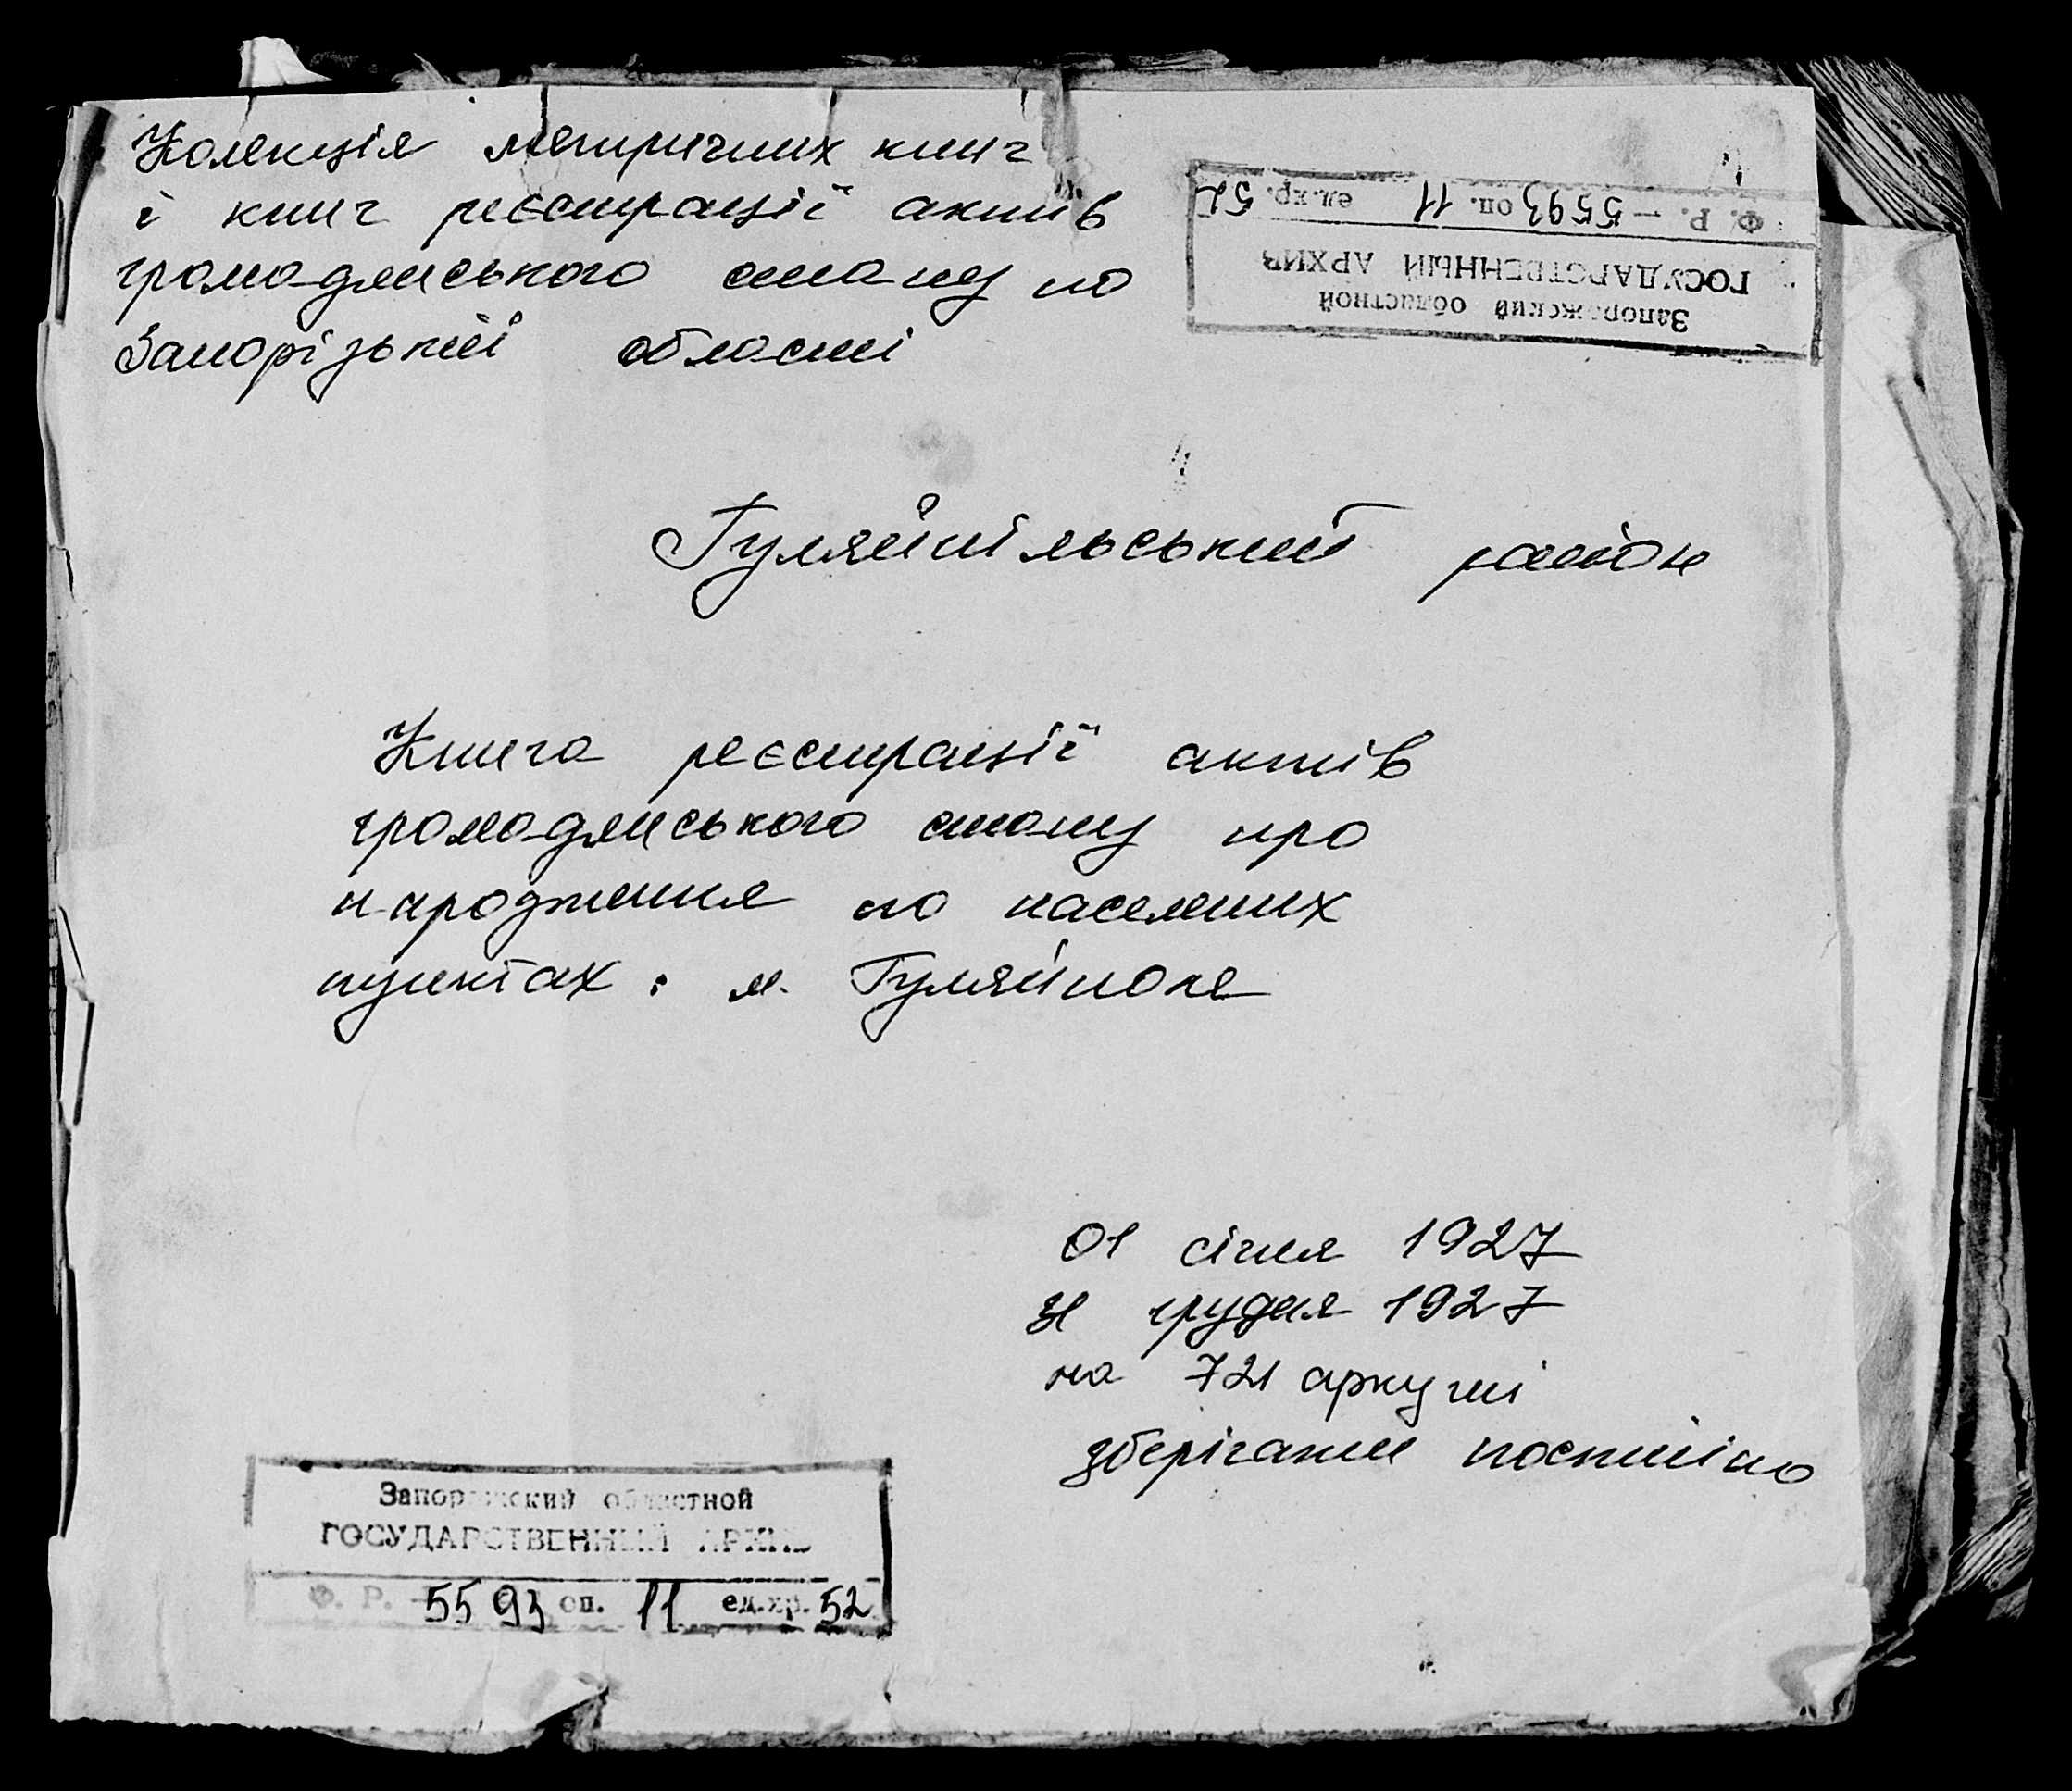 Колекція метричних книг
і книг реєстрації актів
громадянського стану по
Запорізькій області
Запорожский областной
ГОСУДАРСТВЕННЫЙ АРХИВ
Ф. Р. – 5593 оп. 11 ед.хр. 52
Гуляйпільський район
Книга реєстрації актів
громадянського стану про
народження по населених
пунктах: м. Гуляйполе
01 січня 1927
31 грудня 1927
на 721 аркуші
зберігати постійно
Запорожский областной
ГОСУДАРСТВЕННЫЙ АРХИВ
Ф. Р. 5593 оп. 11 ед.хр. 52